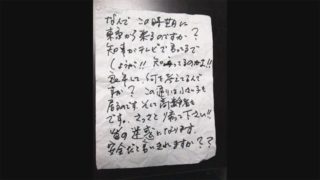 なんで この時期に
東京から来るのですか？
知事がテレビで言ってるで
しょうが！！ 知ってるのかよ！！
いい年して、何を考えてるんで
すか？ この通りは小さい子も
居るのです。そして高齢者も
です。さっさと帰って下さい！！
皆の迷惑になります。
安全だと言いきれますか？？